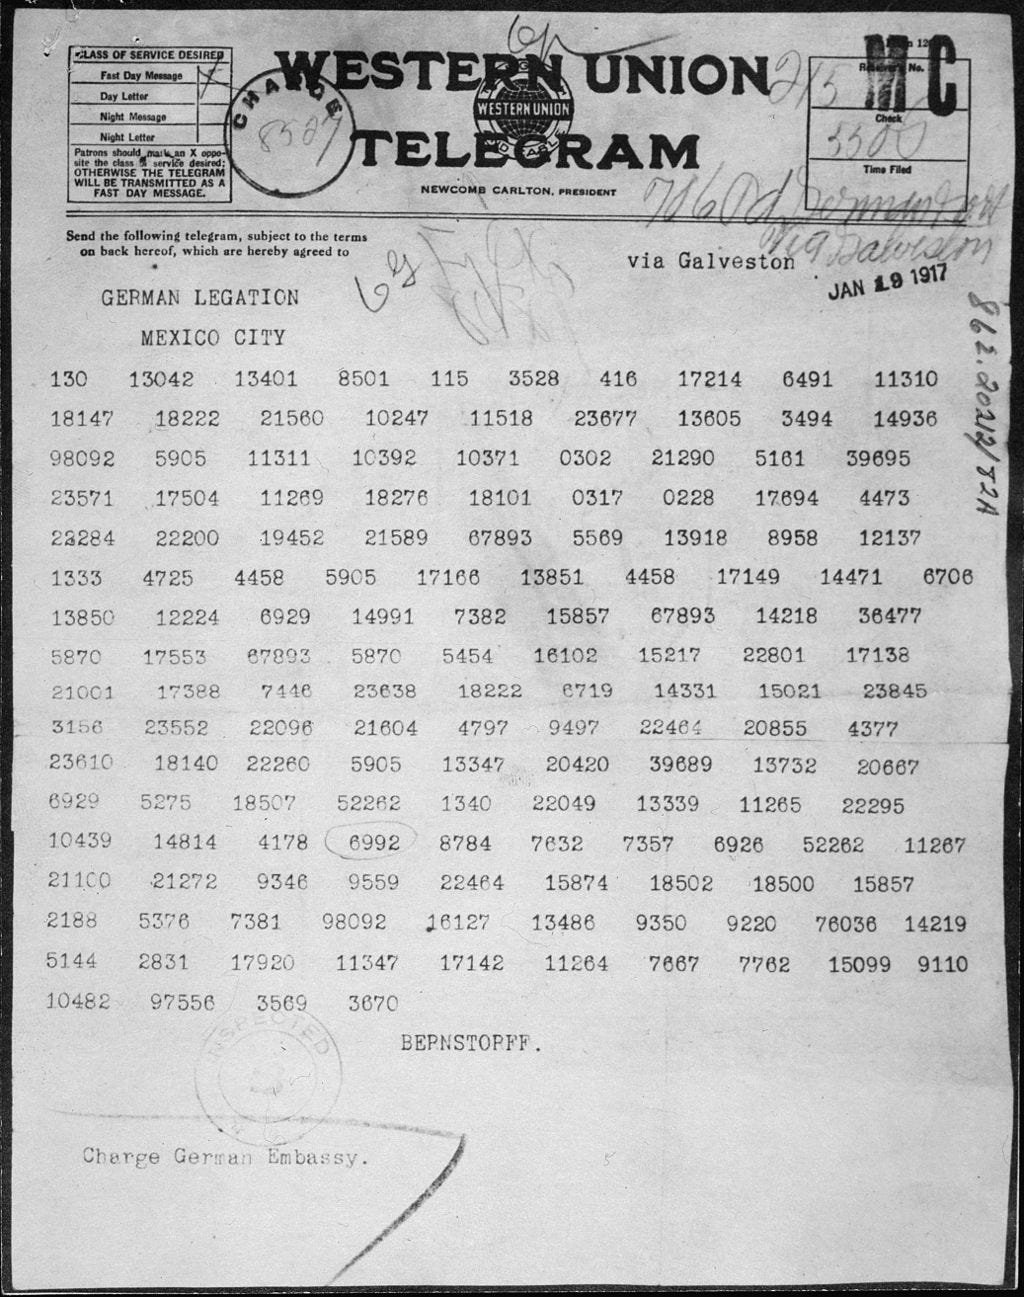 CLASS OF SERVICE DESIRED
Fast Day Message
Day Letter
Night Message
Night Letter
Patrons should mark an X oppo-
site the class of service desired;
OTHERWISE THE TELEGRAM
WILL BE TRANSMITTED AS A
FAST DAY MESSAGE.
CHARGE
8507
WESTERN UNION
WESTERN UNION
TELEGRAM
NEWCOMB CARLTON, PRESIDENT
215
MC
Receiver's No.
Check
Time Filed
Send the following telegram, subject to the terms
on back hereof, which are hereby agreed to
via Galveston
via Galveston
JAN 19 1917
GERMAN LEGATION
MEXICO CITY
862.20212/82A
130 13042 13401 8501 115 3528 416 17214 6491 11310
18147 18222 21560 10247 11518 23677 13605 3494 14936
98092 5905 11311 10392 10371 0302 21290 5161 39695
23571 17504 11269 18276 18101 0317 0228 17694 4473
22284 22200 19452 21589 67893 5569 13918 8958 12137
1333 4725 4458 5905 17166 13851 4458 17149 14471 6706
13850 12224 6929 14991 7382 15857 67893 14218 36477
5870 17553 67893 5870 5454 16102 15217 22801 17138
21001 17388 7446 23638 18222 6719 14331 15021 23845
3156 23552 22096 21604 4797 9497 22464 20855 4377
23610 18140 22260 5905 13347 20420 39689 13732 20667
6929 5275 18507 52262 1340 22049 13339 11265 22295
10439 14814 4178 6992 8784 7632 7357 6926 52262 11267
21100 21272 9346 9559 22464 15874 18502 18500 15857
2188 5376 7381 98092 16127 13486 9350 9220 76036 14219
5144 2831 17920 11347 17142 11264 7667 7762 15099 9110
10482 97556 3569 3670
BEPNSTOPFF.
INSPECTED
Charge German Embassy.